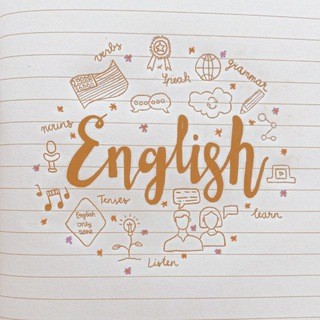 verbs
Speak
grammar
nouns
English
Tenses
English
only
zone
learn
Listen